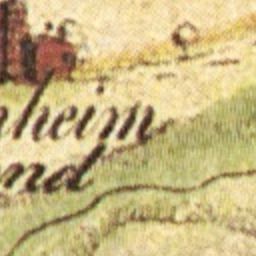 heim
nd